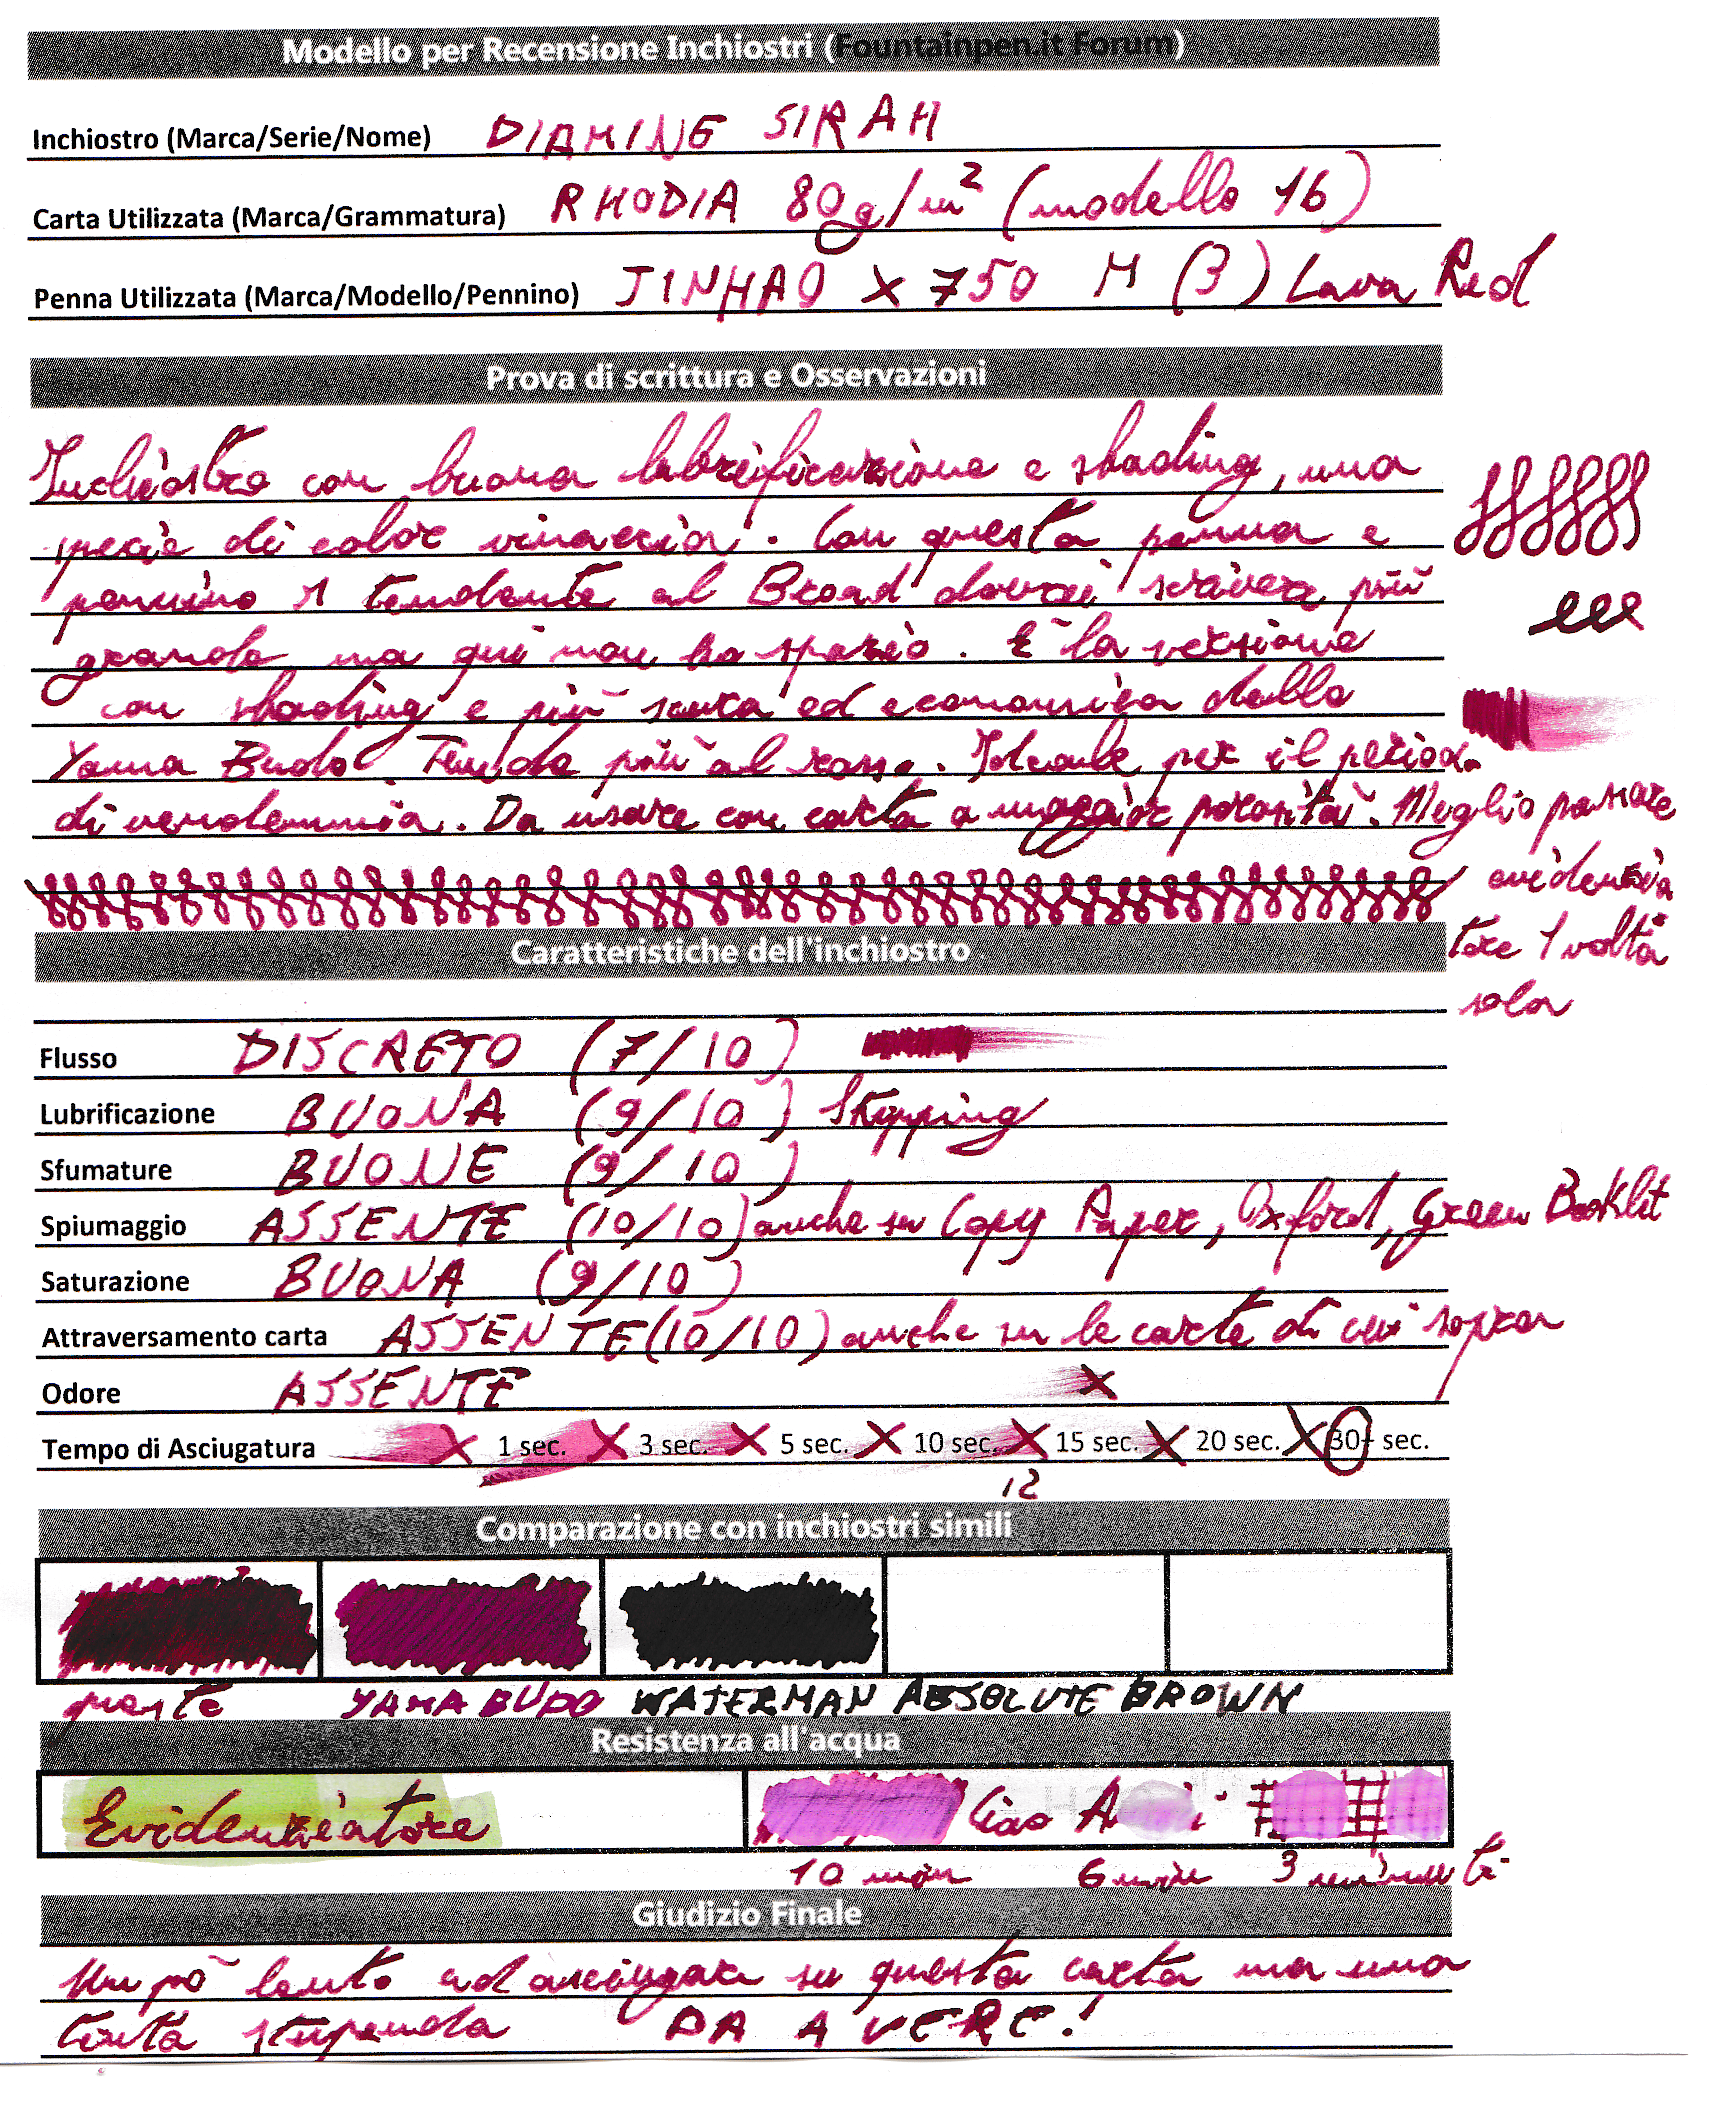 Modello per Recensione Inchiostri (Fountainpen.it Forum)
Inchiostro (Marca/Serie/Nome) DIAMINE SIRAH
Carta Utilizzata (Marca/Grammatura) RHODIA 80g/m² (modello 16)
Penna Utilizzata (Marca/Modello/Pennino) JINHAO X 750 M (3) Lava Red
Prova di scrittura e Osservazioni
Inchiostro con buona lubrificazione e shading, una
specie di color vinaccia. Con questa penna e
pennino M tendente al Broad dovrei scrivere più
grande ma qui non ho spazio. È la versione
con shading e più scura ed economica dello
Yama Budo. Tende più al rosso. Ideale per il periodo
di vendemmia. Da usare con carta a maggior porosità. Meglio passare
evidenzia
tore 1 volta
sola
Caratteristiche dell'inchiostro
Flusso DISCRETO (7/10)
Lubrificazione BUONA (9/10) Skipping
Sfumature BUONE (9/10)
Spiumaggio ASSENTE (10/10) anche su Copy Paper, Oxford, Green Booklet
Saturazione BUONA (9/10)
Attraversamento carta ASSENTE (10/10) anche su le carte di cui sopra
Odore ASSENTE
Tempo di Asciugatura 1 sec. 3 sec. 5 sec. 10 sec. 15 sec. 20 sec. 30+ sec.
12
Comparazione con inchiostri simili
questo YAMA BUDO WATERMAN ABSOLUTE BROWN
Resistenza all'acqua
Evidenziatore Ciao
10 min 6 min 3 minuti
Giudizio Finale
Un pò lento ad asciugare su questa carta ma una
tinta stupenda DA AVERE!